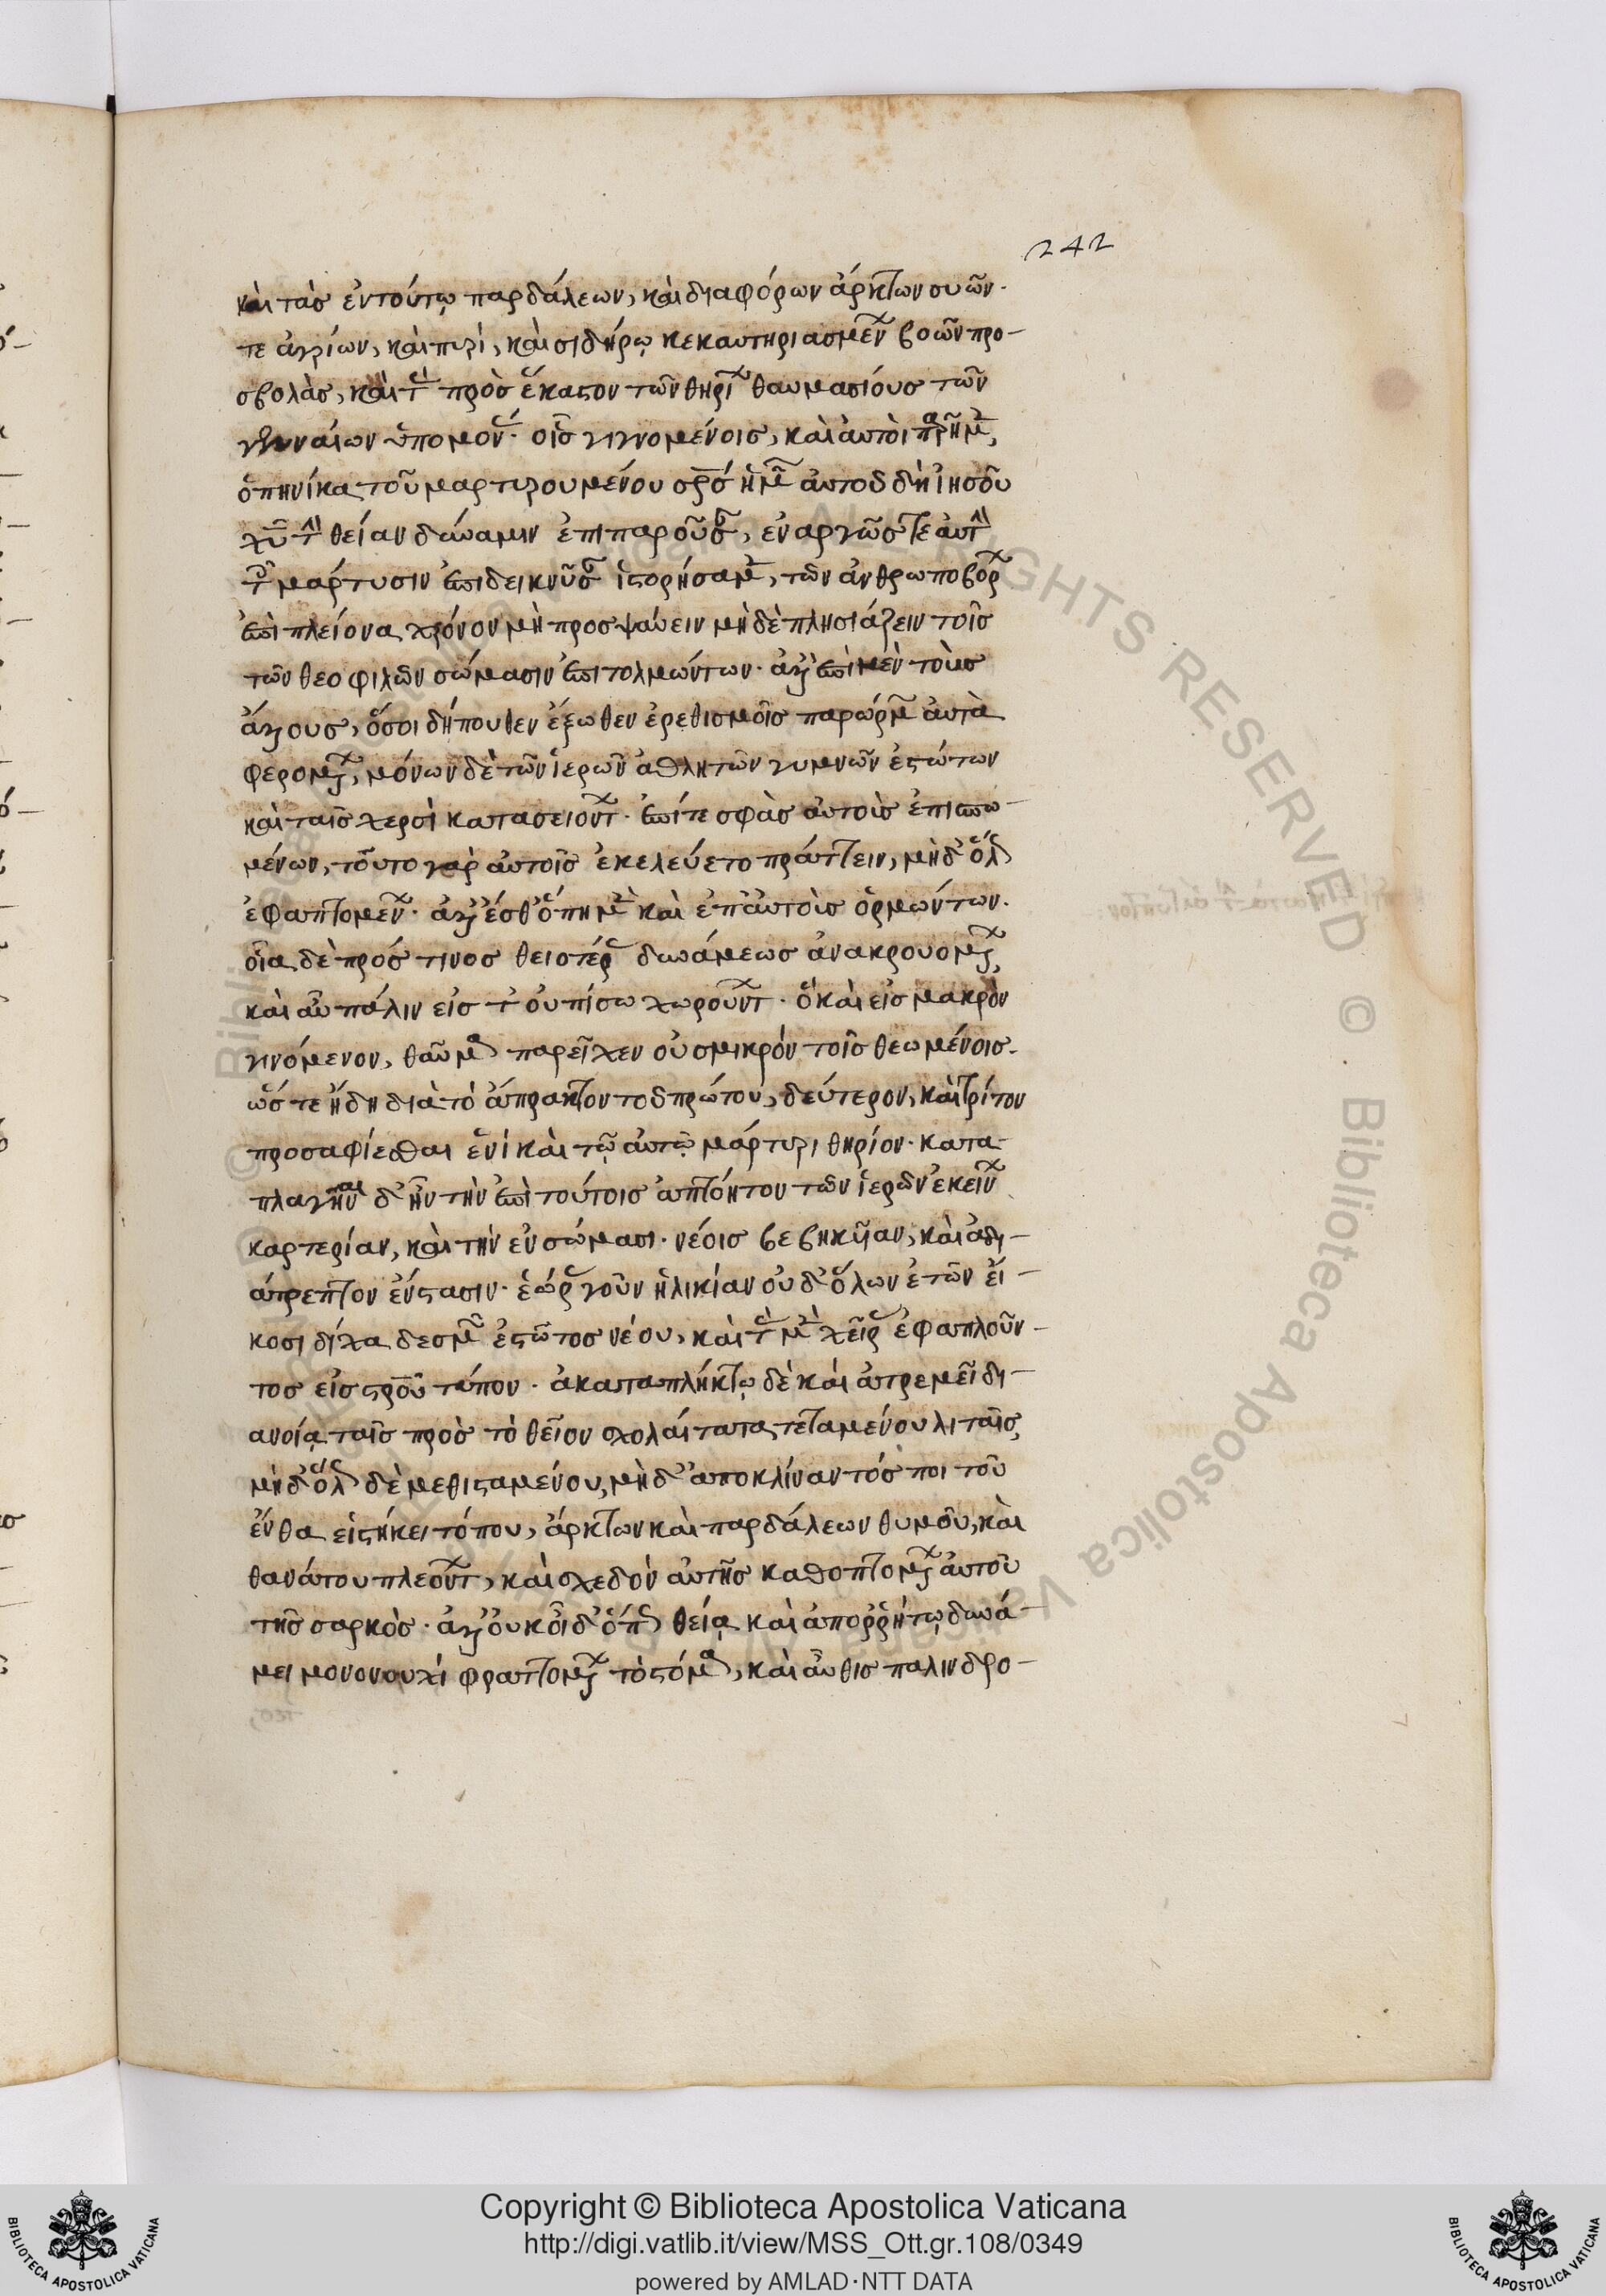 242
καὶ τὰσ ἐν τούτῳ παρδάλεων, καὶ διαφόρων ἄρκτων συῶν·
τε ἀγρίων, καὶ πυρὶ, καὶ σιδήρῳ κεκαυτηριασμεν βοῶν προ-
σβολὰσ, καὶ τ πρὸσ ἕκαστον τῶν θηρι θαυμασίουσ τῶν
γενναίων ὑπομον· οἷσ γιγνομένοισ, καὶ αὐτοὶ παρημ,
ὁπηνίκα τοῦ μαρτυρουμένου σρσ ἡμ αὐτοῦ δὴ ἰησοῦ
χυ τ θείαν δύναμιν ἐπιπαροῦσ, ἐναργῶσ τε αὐτ
τ μάρτυσιν ἐπιδεικνῦσ ἱστορήσαμ, τῶν ἀνθρωποβόρ
ἐπὶ πλείονα χρόνον μὴ προσψαύειν μὴ δὲ πλησιάζειν τοῖσ
τῶν θεοφιλῶν σώμασιν ἐπιτολμώντων· ἀλλ' ἐπὶ μὲν τοὺσ
ἄλλουσ, ὅσοι δήπουθεν ἔξωθεν ἐρεθισμοῖσ παρώρμ αὐτὰ
φερομ, μόνων δὲ τῶν ἱερῶν ἀθλητῶν γυμνῶν ἑστώτων
καὶ ταῖσ χερσὶ κατασειοντ· ἐπί τε σφᾶσ αὐτοὺσ ἐπισπω-
μένων, τοῦτο γὰρ αὐτοῖσ ἐκελεύετο πράττειν, μὴ δ' ὅλ
ἐφαπτομεν· ἀλλ' ἔσθ' ὅπη μ καὶ ἐπ' αὐτοὺσ ὁρμώντων·
οἷα δὲ πρόσ τινοσ θειοτέρ δυνάμεωσ ἀνακρουομ,
καὶ αὖ πάλιν εἰσ τ οὐπίσω χωροῦντ· ὃ καὶ εἰσ μακρὸν
γινόμενον, θαῦμ παρεῖχεν οὐ σμικρὸν τοῖσ θεωμένοισ·
ὥστε ἤδη διὰ τὸ ἄπρακτον τοῦ πρώτου, δεύτερον, καὶ τρίτον
προσαφίεσθαι ἑνὶ καὶ τῷ αὐτῷ μάρτυρι θηρίον· κατα-
πλαγῆναι δ' ἦν τὴν ἐπὶ τούτοισ ἀπτόητον τῶν ἱερῶν ἐκείν
καρτερίαν, καὶ τὴν ἐν σώμασι· νέοισ βεβηκυῖαν, καὶ ἀδι-
άτρεπτον ἔνστασιν· ἑώρ γοῦν ἡλικίαν οὐδ' ὅλων ἐτῶν εἴ-
κοσι δίχα δεσμ ἑστῶτοσ νέου, καὶ τ μ χεῖρ ἐφαπλοῦν-
τοσ εἰσ στροῦ τύπον· ἀκαταπλήκτῳ δὲ καὶ ἀτρεμεῖ δι-
ανοίᾳ ταῖσ πρὸσ τὸ θεῖον σχολαίτατα τεταμένου λιταῖσ,
μὴδ' ὅλ δὲ μεθισταμένου, μὴδ' ἀποκλίναντόσ ποι τοῦ
ἔνθα εἱστήκει τόπου, ἄρκτων καὶ παρδάλεων θυμοῦ, καὶ
θανάτου πλεοντ, καὶ σχεδὸν αὐτῆσ καθαπτομ αὐτοῦ
τῆσ σαρκὸσ· ἀλλ' οὐκ οἶδ' ὅπ θείᾳ καὶ ἀπορρήτῳ δυνά-
μει μονονουχὶ φραττομ τὸ στόμ, καὶ αὖθισ παλινδρο-
Copyright © Biblioteca Apostolica Vaticana
http://digi.vatlib.it/view/MSS_Ott.gr.108/0349
powered by AMLAD·NTT DATA